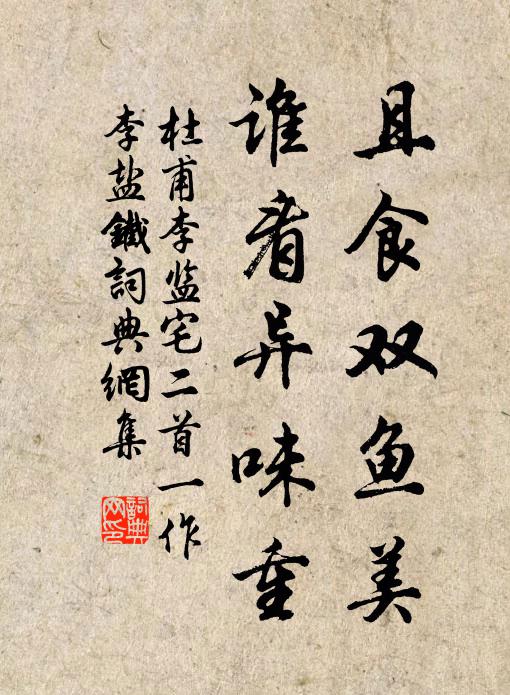 且食双鱼美
谁看异味重
杜甫李监宅二首一作
李盐鐵詞典網集
詞典
网印